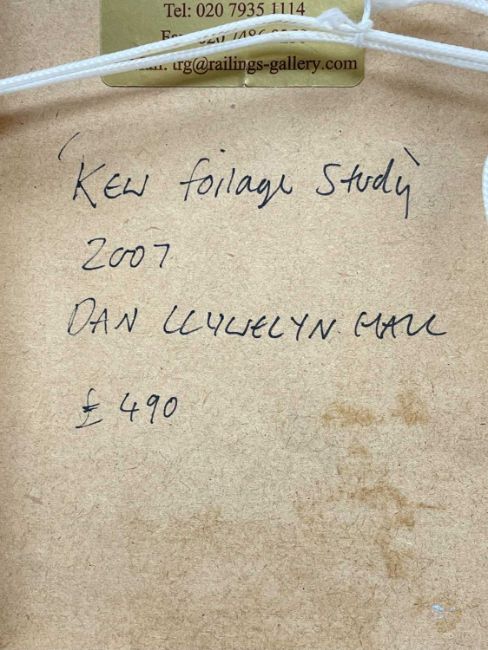 Tel: 020 7935 1114
trg@railings-gallery.com
'Kew foilage Study'
2007
DAN LLYWELYN HALL
£490